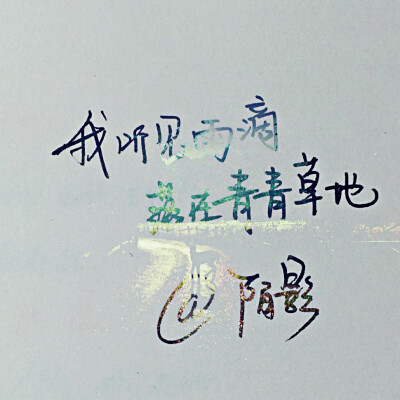 我听见雨滴
落在青青草地
@陌影